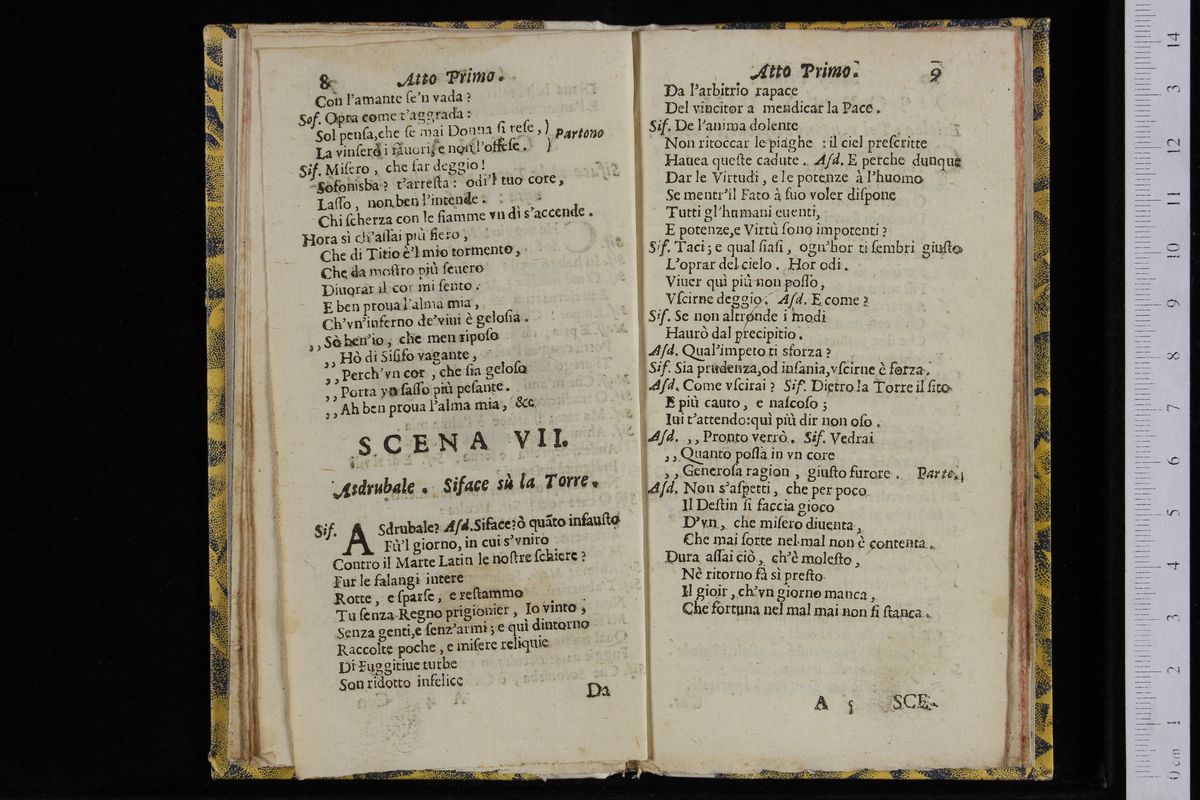 8 Atto Primo.
Con l'amante ſe'n vada ?
Sof. Opra come t'aggrada :
Sol penſa,che ſe mai Donna ſi reſe , } Partono
La vinſero i fauori,e non l'offeſe . }
Sif. Miſero , che far deggio !
Sofonisba ? t'arreſta : odi'l tuo core,
Laſſo , non ben l'intende .
Chi ſcherza con le fiamme vn dì s'accende .
Hora sì ch'aſſai più fiero ,
Che di Titio è'l mio tormento ,
Che da moſtro più ſeuero
Diuorar il cor mi ſento .
E ben proua l'alma mia ,
Ch'vn'inferno de'viui è geloſia .
,,Sò ben'io , che men ripoſo
,,Hò di Siſifo vagante ,
,,Perch'vn cor , che ſia geloſo
,,Porta vn ſaſſo più peſante .
,,Ah ben proua l'alma mia , &c
SCENA VII.
Asdrubale . Siface sù la Torre .
Sif. ASdrubale? Aſd.Siface?ò quãto infauſto
Fù'l giorno, in cui s'vniro
Contro il Marte Latin le noſtre ſchiere ?
Fur le falangi intere
Rotte , e ſparſe , e reſtammo
Tu ſenza Regno prigionier , Io vinto ,
Senza genti,e ſenz'armi ; e quì dintorno
Raccolte poche , e miſere reliquie
Di Fuggitiue turbe
Son ridotto infelice
Da
Atto Primo. 9
Da l'arbitrio rapace
Del vincitor a mendicar la Pace .
Sif. De l'anima dolente
Non ritoccar le piaghe : il ciel preſcritte
Hauea queſte cadute . Aſd. E perche dunque
Dar le Virtudi , e le potenze à l'huomo
Se mentr'il Fato à ſuo voler diſpone
Tutti gl'humani euenti,
E potenze,e Virtù ſono impotenti ?
Sif. Taci ; e qual ſiaſi , ogn'hor ti ſembri giuſto
L'oprar del cielo . Hor odi .
Viuer quì più non poſſo ,
Vſcirne deggio . Aſd. E come ?
Sif. Se non altronde i modi
Haurò dal precipitio .
Aſd. Qual'impeto ti sforza ?
Sif. Sia prudenza,od inſania,vſcirne è forza .
Aſd. Come vſcirai ? Sif. Dietro la Torre il ſito
E più cauto , e naſcoſo ;
Iui t'attendo:quì più dir non oſo .
Aſd. ,,Pronto verrò . Sif. Vedrai
,,Quanto poſſa in vn core
,,Generoſa ragion , giuſto furore . Parte.
Aſd. Non s'aſpetti , che per poco
Il Deſtin ſi faccia gioco
D'vn , che miſero diuenta ,
Che mai ſorte nel mal non è contenta .
Dura aſſai ciò , ch'è moleſto ,
Nè ritorno fà sì preſto
Il gioir , ch'vn giorno manca ,
Che fortuna nel mal mai non ſi ſtanca .
A 5 SCE-
0 cm 1 2 3 4 5 6 7 8 9 10 11 12 13 14